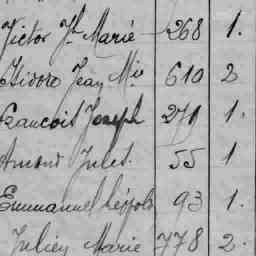 Victor Jh Marie 268 1.
Isidore Jean Mie 610 2
Francois Joseph 271 1.
Amand Jules. 55 1
Emmanuel Léopold 93 1.
Julien Marie 778 2.